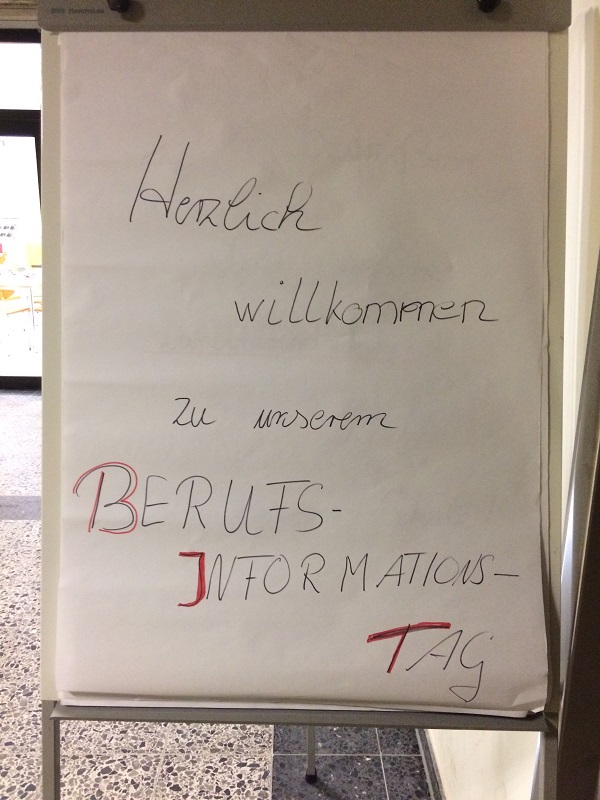 Herzlich
willkommen
zu unserem
BERUFS-
INFORMATIONS-
TAG